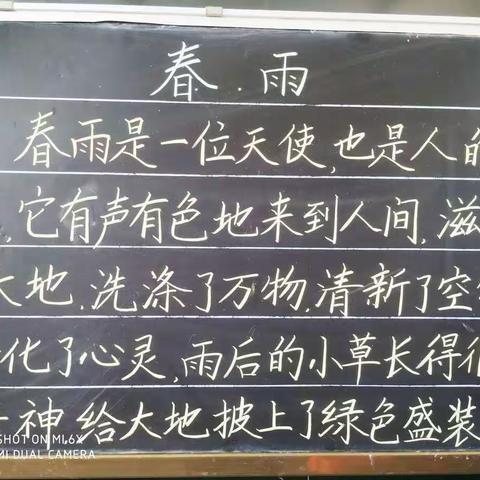 春雨
春雨是一位天使,也是人的
,它有声有色地来到人间,滋
大地,洗涤了万物,清新了空
化了心灵,雨后的小草长得很
神给大地披上了绿色盛装
SHOT ON MI 6X
MI DUAL CAMERA